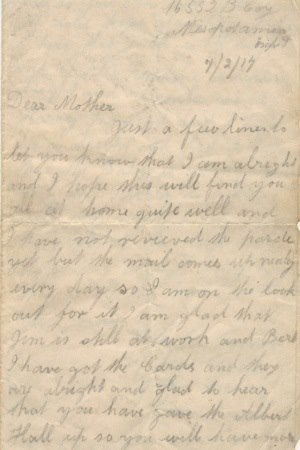 16552 B Coy
Mesopotamia
7/2/17
Dear Mother
Just a few lines to
let you know that I am alright
and I hope this will find you
all at home quite well and
I have not recieved the parcle
yet but the mail comes up nearly
every day so I am on the look
out for it I am glad that
Jim is still at work and Bert
I have got the Cards and they
are alright and glad to hear
that you have gave the Albert
Hall up so you will have more